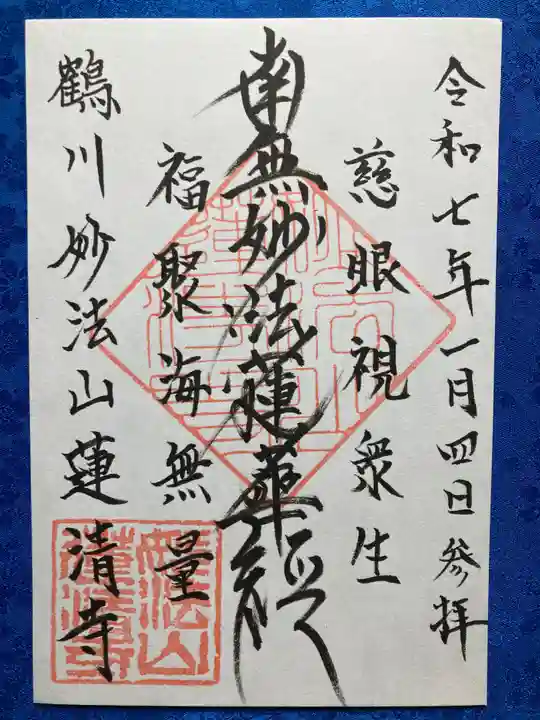 令和七年一月四日参拝
慈眼視衆生
南無妙法蓮華経
福聚海無量
鶴川妙法山蓮清寺
妙法山蓮清寺